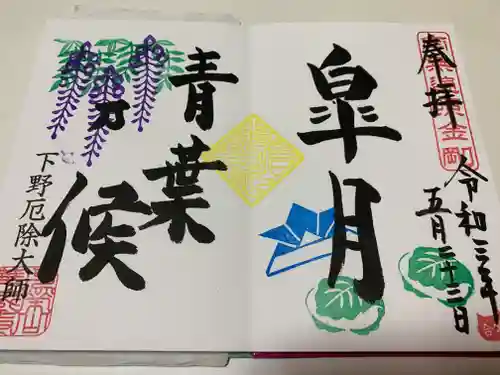 奉拝
皐月
令和三年
五月二十三日
青葉
候
下野厄除大師